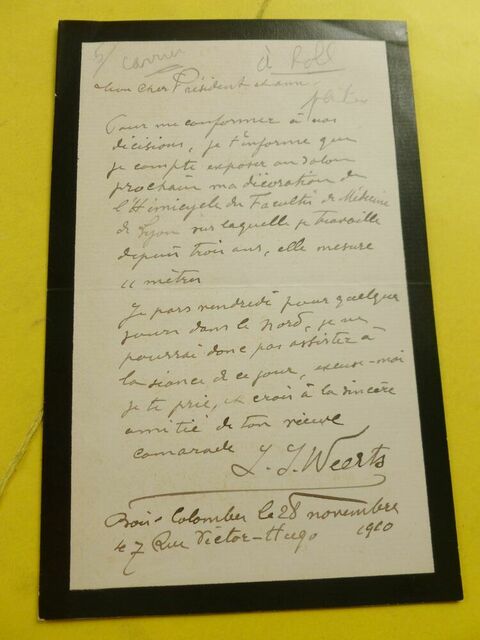 à Roll
Mon cher Président et ami
Pour me conformer à nos
décisions, je t'informe que
je compte exposer au salon
prochain ma décoration de
l'Hémicycle du Facultés de Médecine
de Lyon sur laquelle je travaille
depuis trois ans, elle mesure
11 mètres
Je pars vendredi pour quelques
jours dans le Nord, je ne
pourrai donc pas assister à
la séance de ce jour, excuse-moi
je te prie, et crois à la sincère
amitié de ton vieux
camarade J. J. Weerts
Bois-Colombes le 28 novembre
47 Rue Victor-Hugo 1910